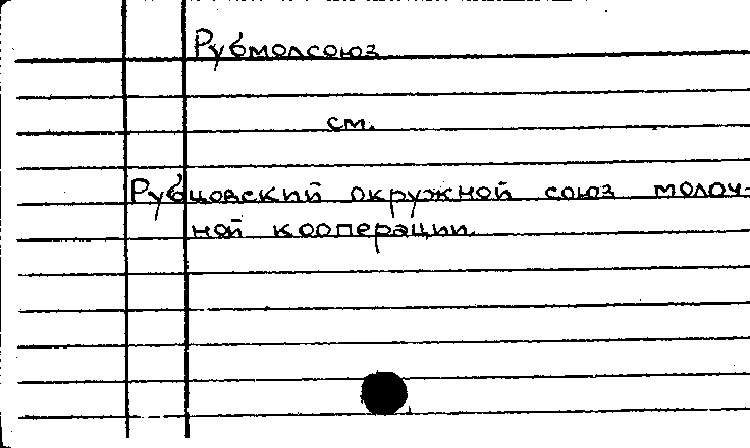 Рубмолсоюз
см.
Рубцовский окружной союз молоч-
ной кооперации.